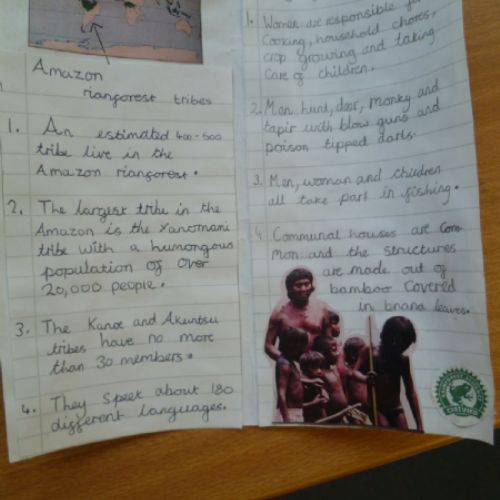 Amazon
rianforest tribes
1. An estimated 400-500
tribe live in the
Amazon rianforest.
2. The largest tribe in the
Amazon is the Yanomami
tribe with a humongous
population of over
20,000 people.
3. The Kanoe and Akuntsu
tribes have no more
than 30 members.
4. They speek about 180
different languages.
1. Women are responsible
Cooking, household chores,
crop growing and taking
care of children.
2. Men hunt, deer, monkey and
tapir with blow guns and
poison tipped darts.
3. Men, woman and children
all take part in fishing.
4 Communal houses are com-
mon and the structures
are made out of
bamboo covered
in bnana leaves.